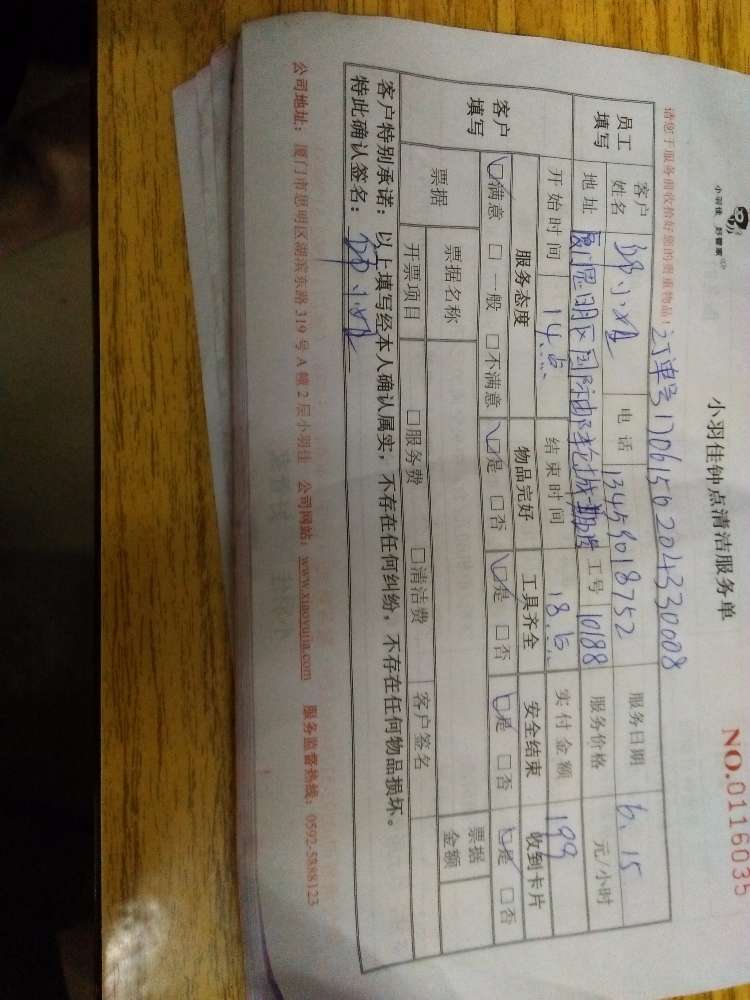 小羽佳 好管家
小羽佳钟点清洁服务单
NO.0116035
请您于服务前收拾好您的贵重物品!
订单号17061562043330008
员工填写 客户姓名 电话 13459018752 服务日期 6.15
地址 工号 10188 服务价格 元/小时
开始时间 14.5 结束时间 18.5 实付金额 199
客户填写 服务态度 物品完好 工具齐全 安全结束 收到卡片
☑满意 □一般 □不满意 ☑是 □否 ☑是 □否 ☑是 □否 ☑是 □否
票据 票据名称 票据金额
开票项目 □服务费 □清洁费 客户签名
客户特别承诺:以上填写经本人确认属实,不存在任何纠纷,不存在任何物品损坏。
特此确认签名:
公司地址:厦门市思明区湖滨东路319号A幢2层小羽佳 公司网站:www.xiaoyujia.com 服务监督热线:0592-5888123